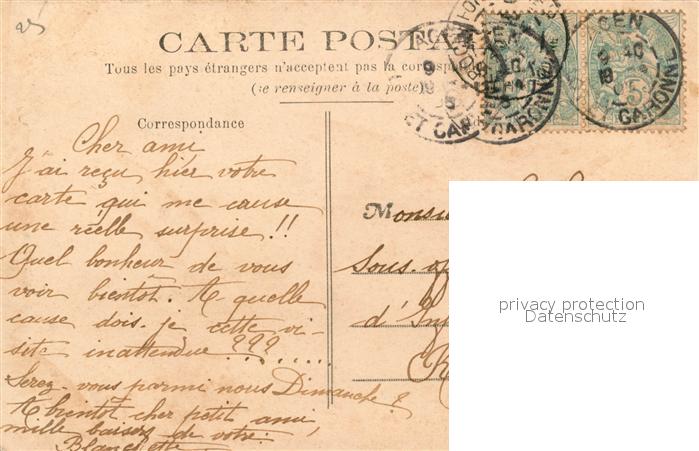 25
CARTE POSTA
Tous les pays étrangers n'acceptent pas la correspo
(se renseigner à la poste)
Correspondance
Cher ami
J'ai reçu hier votre
carte qui me cause
une réelle surprise!!
Quel bonheur de vous
voir bientôt. A quelle
cause dois-je cette vi-
site inattendue ???.......
Serez-vous parmi nous Dimanche?
A bientôt cher petit ami,
mille baisers de votre
Blanchette
Monsi
Sous-of
d'Inf
R
privacy protection
Datenschutz
GEN
9
GARONNE
ET GAR
GARONNE
5